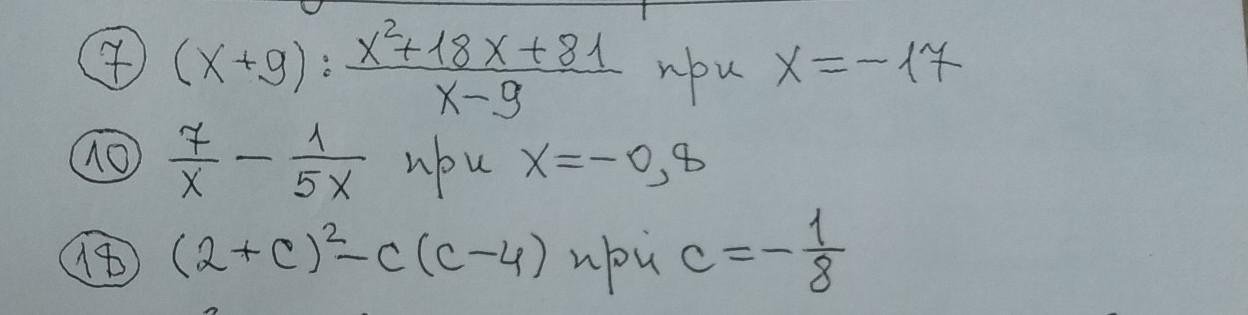 7 (x+9) : (x²+18x+81)/(x-9) при x=-17
10 7/x - 1/5x при x=-0,8
18 (2+c)²-c(c-4) при c=-1/8